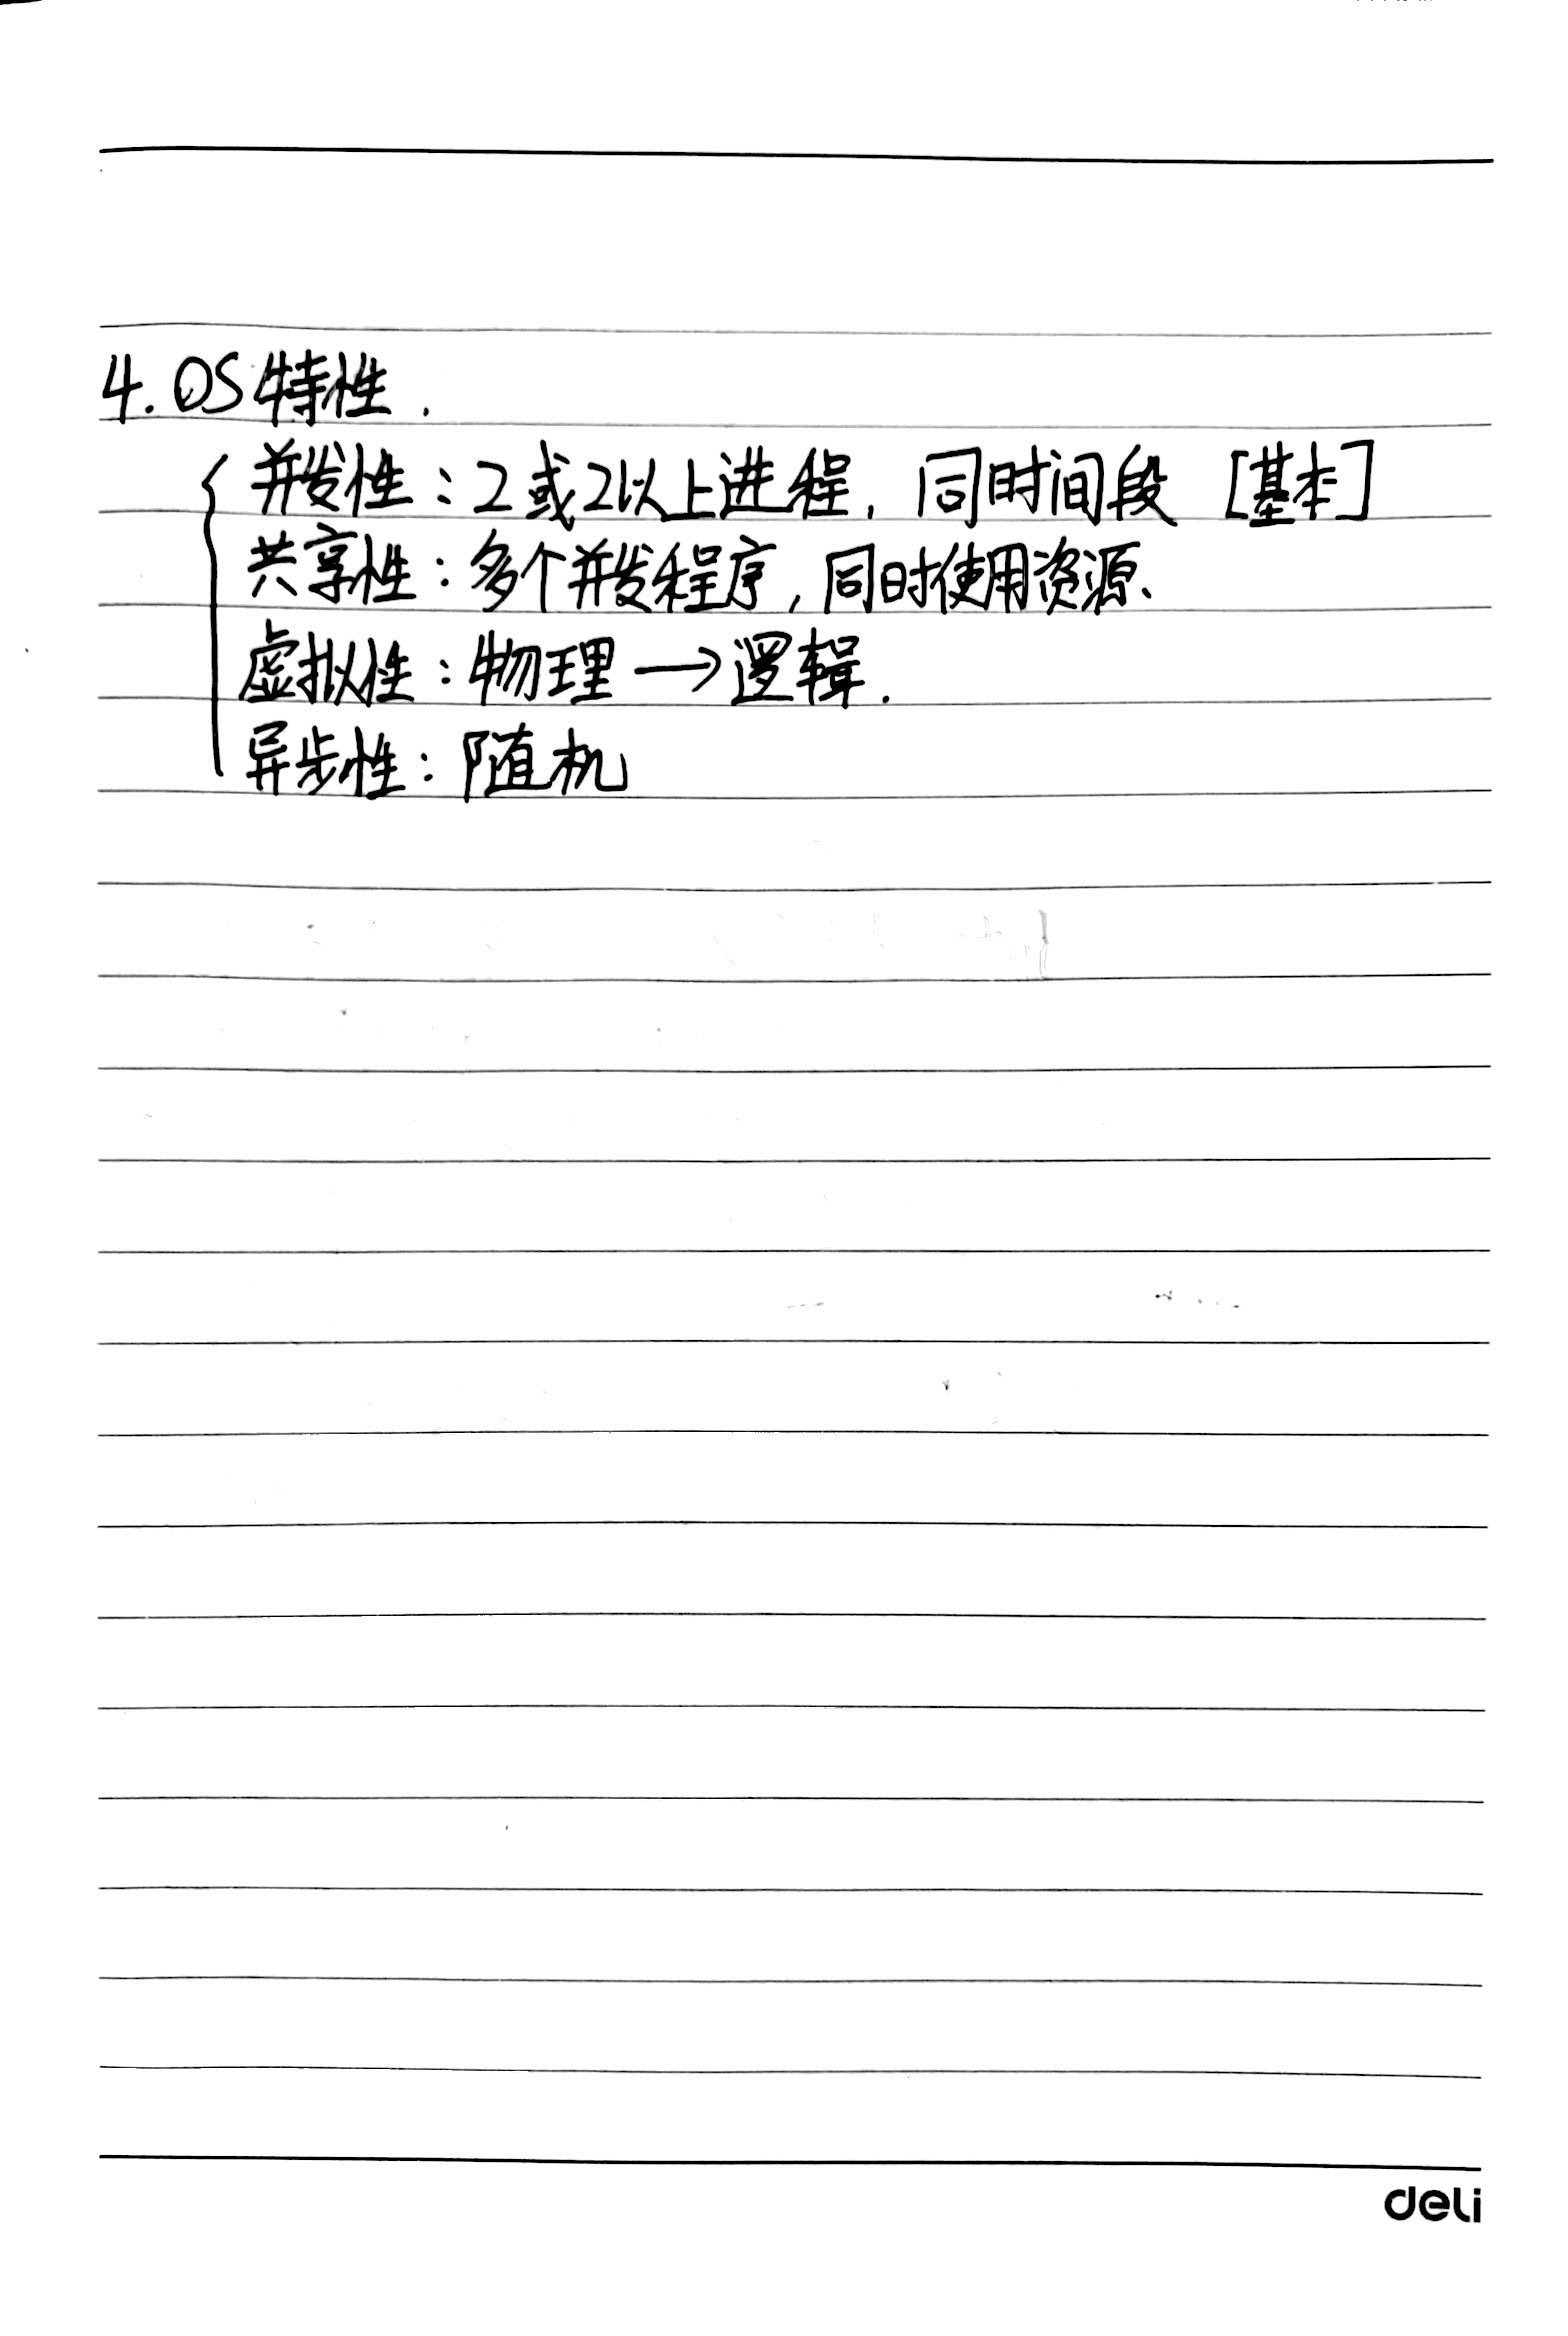 4. OS特性.
并发性：2或2以上进程，同时间段 [基本]
共享性：多个并发程序，同时使用资源、
虚拟性：物理→逻辑.
异步性：随机
deli